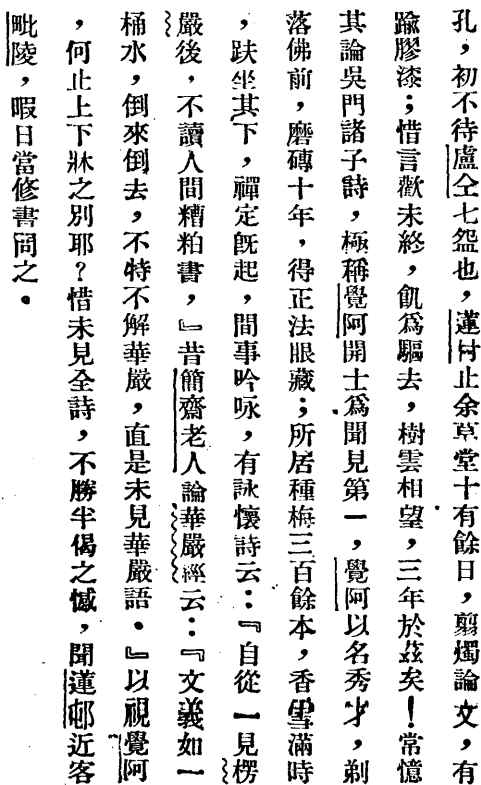 孔，初不待盧仝七盌也，蓮邨止余草堂十有餘日，翦燭論文，有
踰膠漆；惜言歡未終，飢爲驅去，樹雲相望，三年於茲矣！常憶
其論吳門諸子詩，極稱覺阿開士爲聞見第一，覺阿以名秀才，剃
落佛前，磨磚十年，得正法眼藏；所居種梅三百餘本，香雪滿時
，趺坐其下，禪定旣起，間事吟咏，有詠懷詩云：『自從一見楞
嚴後，不讀人間糟粕書，』昔簡齋老人論華嚴經云：『文義如一
桶水，倒來倒去，不特不解華嚴，直是未見華嚴語。』以視覺阿
，何止上下牀之別耶？惜未見全詩，不勝半偈之憾，聞蓮邨近客
毗陵，暇日當修書問之。